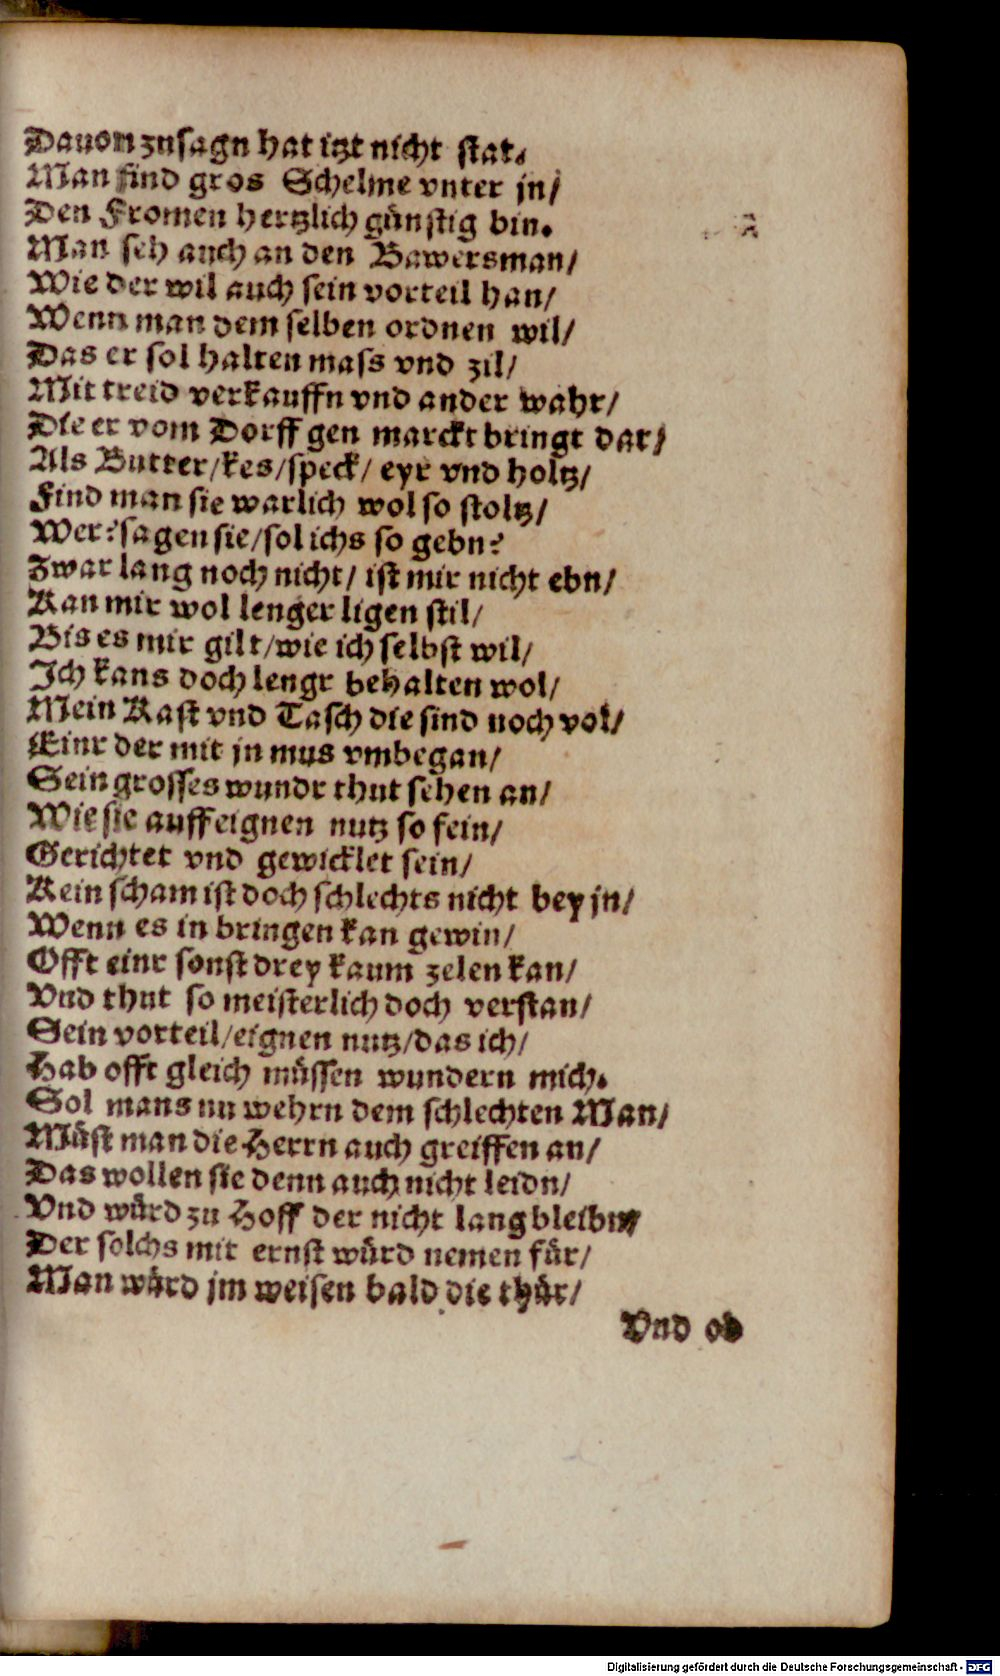 Dauon zusagn hat itzt nicht stat.
Man find gros Schelme vnter jn/
Den Fromen hertzlich günstig bin.
Man seh auch an den Bawersman/
Wie der wil auch sein vorteil han/
Wenn man dem selben ordnen wil/
Das er sol halten mass vnd zil/
Mit treid verkauffn vnd ander wahr/
Die er vom Dorff gen marckt bringt dar/
Als Butter/kes/speck/ eyr vnd holtz/
Find man sie warlich wol so stoltz/
Wer? sagen sie/sol ichs so gebn?
Zwar lang noch nicht/ ist mir nicht ebn/
Kan mir wol lenger ligen stil/
Bis es mir gilt/wie ich selbst wil/
Ich kans doch lengr behalten wol/
Mein Kast vnd Tasch die sind noch vol/
Einr der mit jn mus vmbegan/
Sein grosses wundr thut sehen an/
Wie sie auff eignen nutz so fein/
Gerichtet vnd gewicklet sein/
Kein scham ist doch schlechts nicht bey jn/
Wenn es in bringen kan gewin/
Offt einr sonst drey kaum zelen kan/
Vnd thut so meisterlich doch verstan/
Sein vorteil/eignen nutz/das ich/
Hab offt gleich müssen wundern mich.
Sol mans nu wehrn dem schlechten Man/
Müst man die Herrn auch greiffen an/
Das wollen sie denn auch nicht leidn/
Vnd würd zu Hoff der nicht lang bleibn/
Der solchs mit ernst würd nemen für/
Man würd jm weisen bald die thür/
Vnd ob
Digitalisierung gefördert durch die Deutsche Forschungsgemeinschaft - DFG